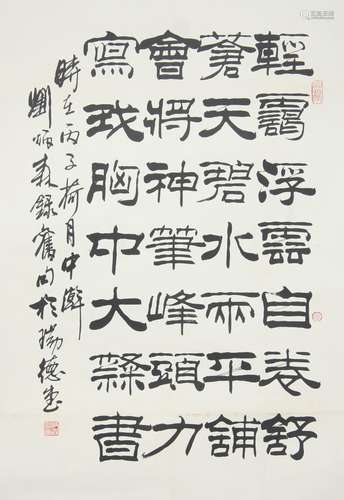 輕靄浮雲自卷舒
蒼天碧水兩平鋪
會將神筆峰頭力
寫我胸中大隸書
時在丙子荷月中澣
劉炳森錄舊句於瑞德堂